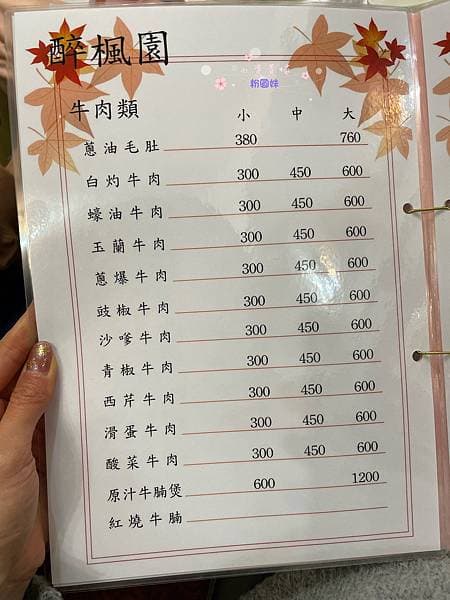 醉楓園
粉圓妹
牛肉類 小 中 大
蔥油毛肚 380 760
白灼牛肉 300 450 600
蠔油牛肉 300 450 600
玉蘭牛肉 300 450 600
蔥爆牛肉 300 450 600
豉椒牛肉 300 450 600
沙嗲牛肉 300 450 600
青椒牛肉 300 450 600
西芹牛肉 300 450 600
滑蛋牛肉 300 450 600
酸菜牛肉 300 450 600
原汁牛腩煲 600 1200
紅燒牛腩